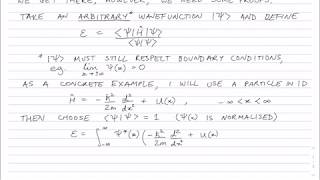 WE GET THERE, HOWEVER, WE NEED SOME PROOFS.
TAKE AN ARBITRARY* WAVEFUNCTION |Ψ> AND DEFINE
ε = <Ψ|Ĥ|Ψ> / <Ψ|Ψ>
* |Ψ> MUST STILL RESPECT BOUNDARY CONDITIONS,
eg. lim x→±∞ Ψ(x) = 0
AS A CONCRETE EXAMPLE, I WILL USE A PARTICLE IN 1D
Ĥ = - ħ²/2m d²/dx² + U(x) , -∞ < x < ∞
THEN CHOOSE <Ψ|Ψ> = 1 (Ψ(x) IS NORMALISED)
ε = ∫_{-∞}^{∞} Ψ*(x) (- ħ²/2m d²/dx² + U(x)